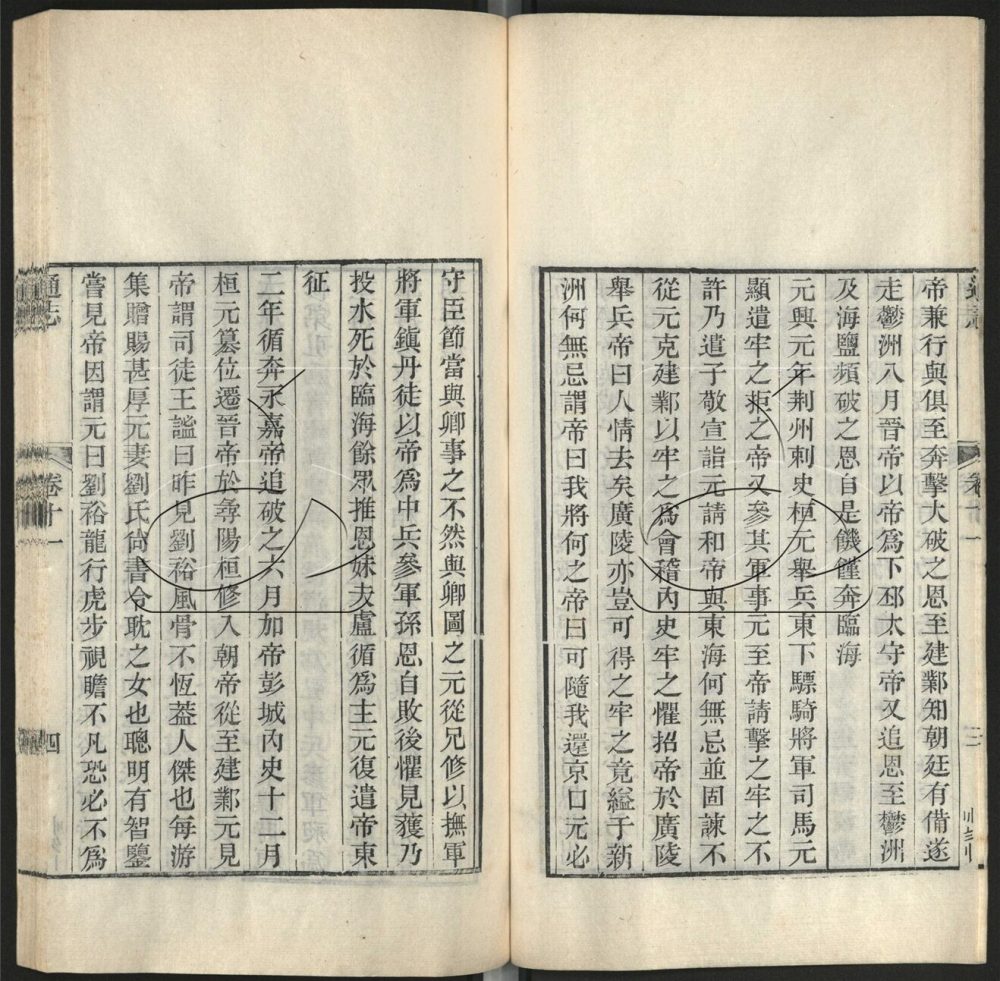 帝兼行與俱至奔擊大破之恩至建鄴知朝廷有備遂
走鬱洲八月晉帝以帝爲下邳太守帝又追恩至鬱洲
及海鹽頻破之恩自是饑饉奔臨海
元興元年荆州刺史桓元舉兵東下驃騎將軍司馬元
顯遣牢之拒之帝又參其軍事元至帝請擊之牢之不
許乃遣子敬宣詣元請和帝與東海何無忌並固諫不
從元克建鄴以牢之爲會稽內史牢之懼招帝於廣陵
舉兵帝曰人情去矣廣陵亦豈可得之牢之竟縊于新
洲何無忌謂帝曰我將何之帝曰可隨我還京口元必
守臣節當與卿事之不然與卿圖之元從兄修以撫軍
將軍鎭丹徒以帝爲中兵參軍孫恩自敗後懼見獲乃
投水死於臨海餘眾推恩妹夫盧循爲主元復遣帝東
征
二年循奔永嘉帝追破之六月加帝彭城內史十二月
桓元篡位遷晉帝於尋陽桓修入朝帝從至建鄴元見
帝謂司徒王謐曰昨見劉裕風骨不恆葢人傑也每游
集贈賜甚厚元妻劉氏尙書令耽之女也聰明有智鑒
嘗見帝因謂元曰劉裕龍行虎步視瞻不凡恐必不爲
通志
卷十一
四